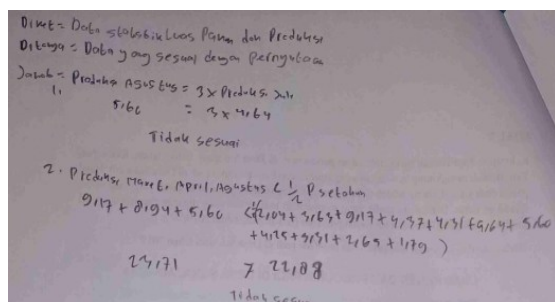 Diket = Data statistik Luas Panen dan Produksi
Ditanya = Data yang sesuai dengan pernyataan
Jawab = Produksi Agustus = 3 x Produksi Juli
1.
5,60 = 3 x 4,64
Tidak sesuai
2. Produksi Maret, April, Agustus < 1/2 P setahun
9,17 + 8,94 + 5,60 < 1/2 (2,04 + 3,63 + 9,17 + 4,37 + 4,31 + 4,64 + 5,60
+ 4,25 + 3,31 + 2,65 + 1,79)
23,71 > 22,88
Tidak